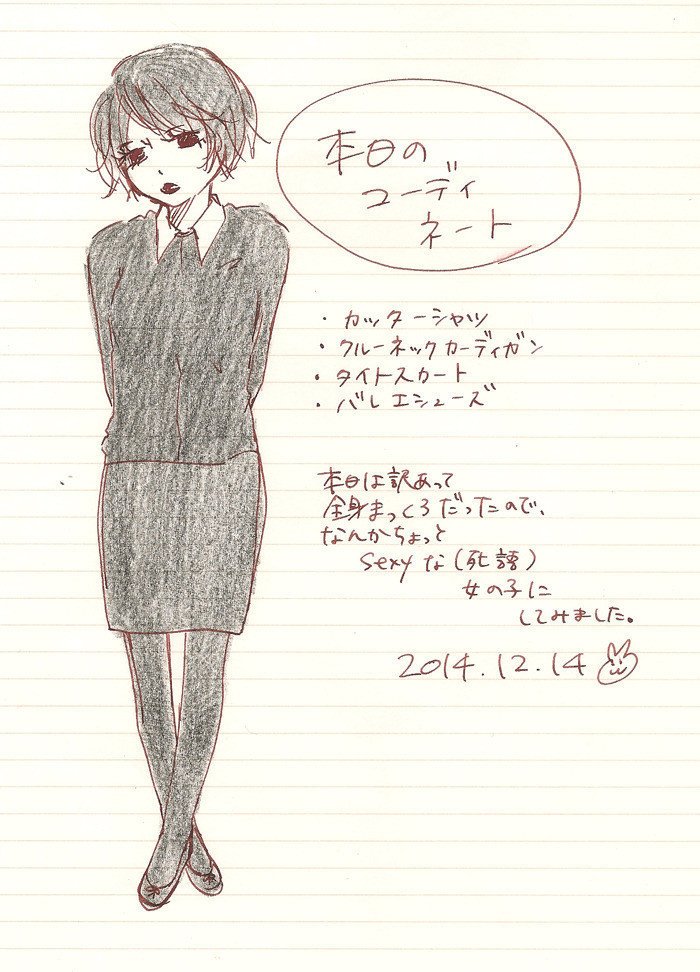 本日の
コーディ
ネート
・カッターシャツ
・クルーネックカーディガン
・タイトスカート
・バレエシューズ
本日は訳あって
全身まっくろだったので、
なんかちょっと
sexyな(死語)
女の子に
してみました。
2014.12.14